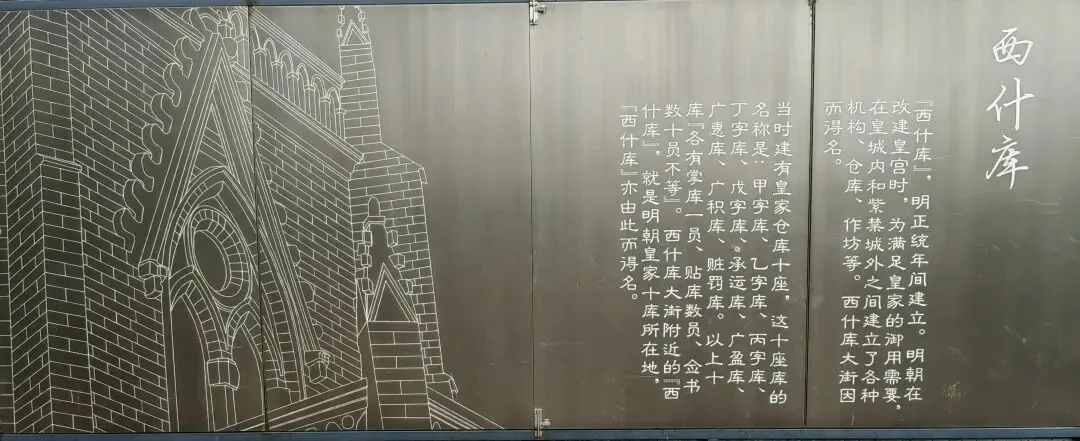 西什库
『西什库』，明正统年间建立。明朝在
改建皇宫时，为满足皇家的御用需要，
在皇城内和紫禁城外之间建立了各种
机构、仓库、作坊等。西什库大街因
而得名。
当时建有皇家仓库十座，这十座库的
名称是：甲字库、乙字库、丙字库、
丁字库、戊字库、承运库、广盈库、
广惠库、广积库、赃罚库。以上十
库『各有掌库一员、贴库数员、佥书
数十员不等』。西什库大街附近的『西
什库』，就是明朝皇家十库所在地，
『西什库』亦由此而得名。